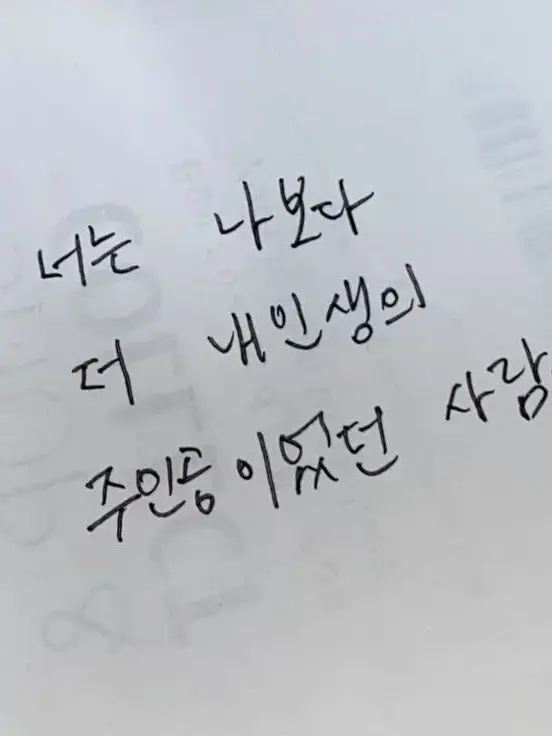 너는 나보다
더 내인생의
주인공이었던 사람